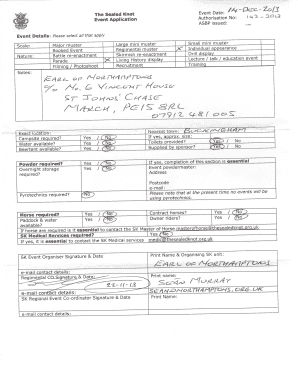 The Sealed Knot
Event Application
Event Date: 14-DEC-2013
Authorisation No: 142-2013
ASBP Issued: -
Event Details: Please select all that apply
Scale: Major muster Large mini muster Small mini muster
Booked Event Regimental muster X Individual appearance
Nature: Battle re-enactment Skirmish re-enactment Drill display
Parade X Living History display Lecture / talk / education event
Filming / Photoshoot Recruitment Training
Notes:
EARL OF NORTHAMPTONS
c/o No. 6 VINCENT HOUSE
ST JOHNS' CHASE
MARCH, PE15 8RL
07912 481005
Exact location: Nearest town: BUCKINGHAM
Campsite required? Yes / No If yes, approx size:
Water available? Yes / No Toilets provided? Yes / No
Beertent available? Yes / No Supplied by sponsor? Yes / No
Powder required? Yes / No If yes, completion of this section is essential
Overnight storage required? Yes / No Event powdermaster:
Address:
Postcode
e-mail:
Pyrotechnics required? No Please note that at the present time no events will be using pyrotechnics.
Horse required? Yes / No Contract horses? Yes / No
Paddock & water available? Yes / No Owner riders? Yes / No
If horse are required it is essential to contact the SK Master of Horse
SK Medical Services required? Yes / No
If yes, it is essential to contact the SK Medical service medic@thesealedknot.org.uk
SK Event Organiser Signature & Date Print Name & Organising SK unit:
EARL OF NORTHAMPTONS
e-mail contact details:
Regimental CO Signature & Date: Print name:
22-11-13 SEAN MURRAY
e-mail contact details: SEAN@NORTHAMPTONS.ORG.UK
SK Regional Event Co-ordinator Signature & Date Print Name:
e-mail contact details: